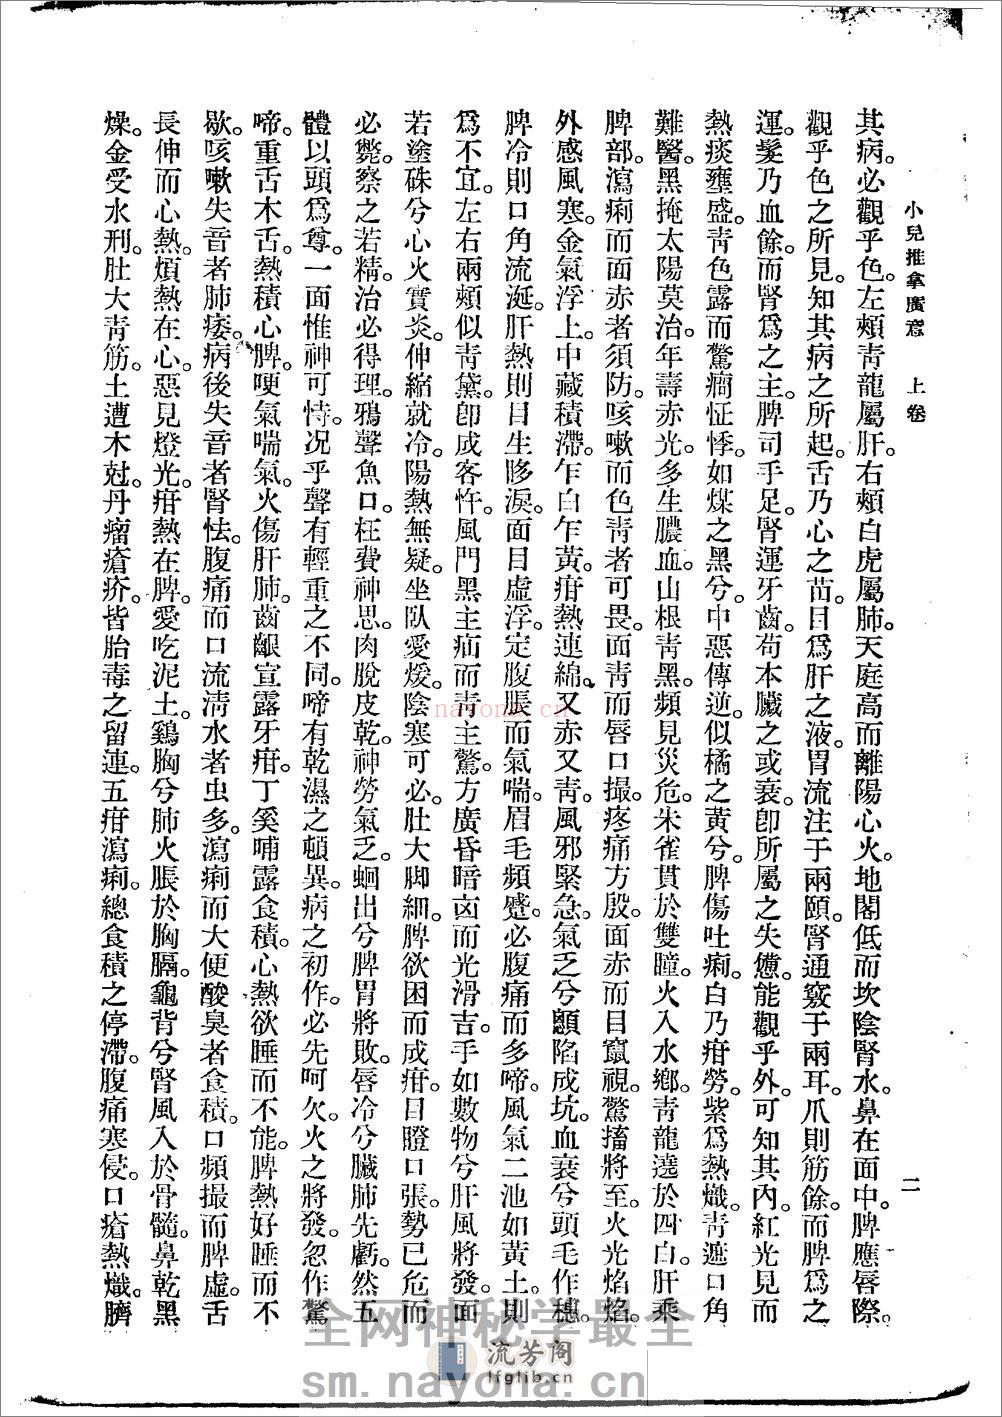 小兒推拿廣意　上卷　二
其病。必觀乎色。左頰青龍屬肝。右頰白虎屬肺。天庭高而離陽心火。地閣低而坎陰腎水。鼻在面中。脾應唇際。
觀乎色之所見。知其病之所起。舌乃心之苗。目爲肝之液。胃流注于兩頤。腎通竅于兩耳。爪則筋餘。而脾爲之
運。髮乃血餘。而腎爲之主。脾司手足。腎運牙齒。苟本臟之或衰。卽所屬之失憊。能觀乎外。可知其內。紅光見而
熱痰壅盛。青色露而驚癎怔悸。如煤之黑兮。中惡傳逆。似橘之黃兮。脾傷吐痢。白乃疳勞。紫爲熱熾。青遮口角
難醫。黑掩太陽莫治。年壽赤光。多生膿血。山根青黑。頻見災危。朱雀貫於雙瞳。火入水鄉。青龍遶於四白。肝乘
脾部。瀉痢而面赤者須防。咳嗽而色青者可畏。面青而唇口撮。疼痛方殷。面赤而目竄視。驚搐將至。火光焰焰。
外感風寒。金氣浮上。中藏積滯。乍白乍黃。疳熱連綿。又赤又青。風邪緊急。氣乏兮顖陷成坑。血衰兮頭毛作穗。
脾冷則口角流涎。肝熱則目生眵淚。面目虛浮。定腹脹而氣喘。眉毛頻蹙。必腹痛而多啼。風氣二池如黃土。則
爲不宜。左右兩頰似青黛。卽成客忤。風門黑主疝而青主驚。方廣昏暗凶而光滑吉。手如數物兮肝風將發。面
若塗硃兮心火實炎。伸縮就冷。陽熱無疑。坐臥愛煖。陰寒可必。肚大脚細。脾欲困而成疳。目瞪口張。勢已危而
必斃。察之若精。治必得理。鴉聲魚口。枉費神思。肉脫皮乾。神勞氣乏。蛔出兮脾胃將敗。唇冷兮臟肺先虧。然五
體以頭爲尊。一面惟神可恃。况乎聲有輕重之不同。啼有乾濕之頓異。病之初作。必先呵欠。火之將發。忽作驚
啼。重舌木舌。熱積心脾。哽氣喘氣。火傷肝肺。齒齦宣露牙疳。丁奚哺露食積。心熱欲睡而不能。脾熱好睡而不
歇。咳嗽失音者肺痿。病後失音者腎怯。腹痛而口流淸水者虫多。瀉痢而大便酸臭者食積。口頻撮而脾虛。舌
長伸而心熱。煩熱在心。惡見燈光。疳熱在脾。愛吃泥土。鷄胸兮肺火脹於胸膈。龜背兮腎風入於骨髓。鼻乾黑
燥。金受水刑。肚大青筋。土遭木尅。丹瘤瘡疥。皆胎毒之留連。五疳瀉痢。總食積之停滯。腹痛寒侵。口瘡熱熾。臍
nayona.cn
全网神秘学最全
流芳阁
lfglib.cn
sm.nayona.cn